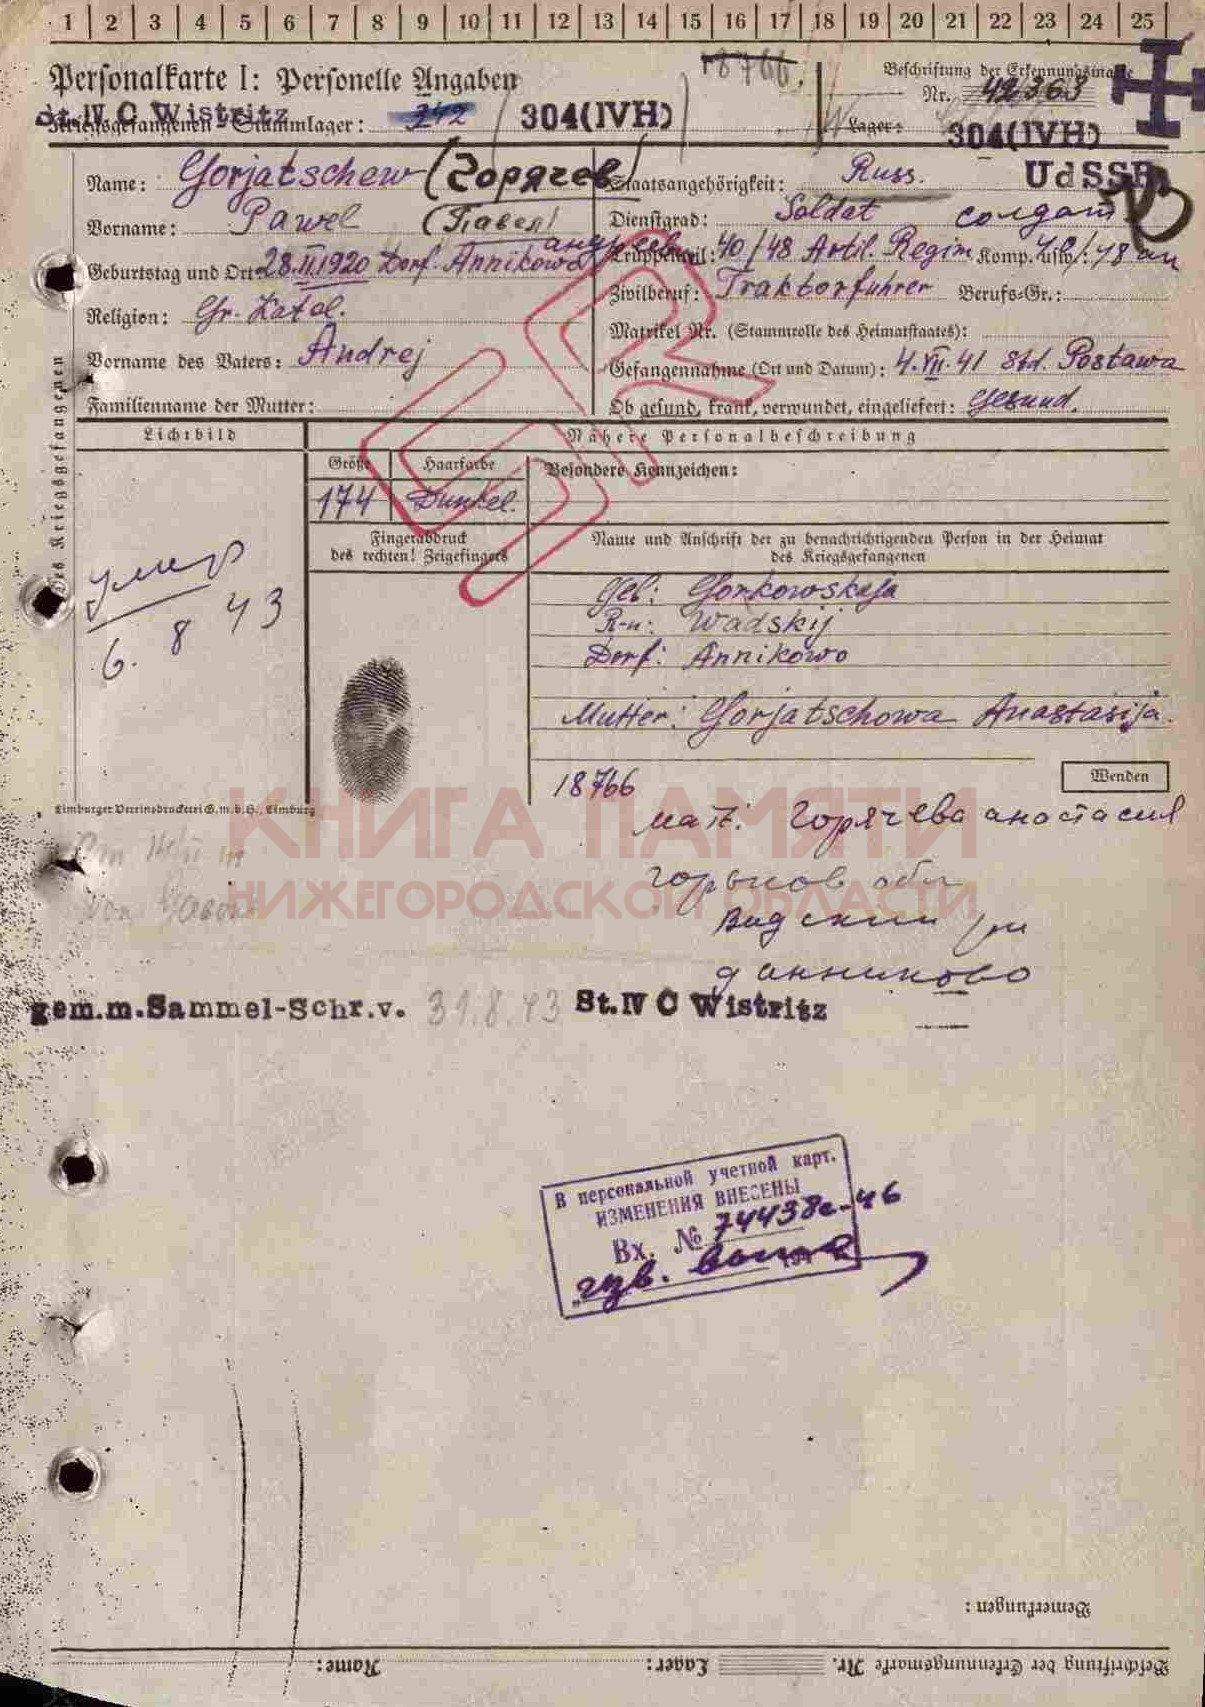 1 2 3 4 5 6 7 8 9 10 11 12 13 14 15 16 17 18 19 20 21 22 23 24 25
18766.
Personalkarte I: Personelle Angaben
Beschriftung der Erkennungsmarke
Nr. 42363
St. IV C Wistritz
Kriegsgefangenen-Stammlager: 304(IVH)
Lager: 304(IVH)
UdSSR
Name: Gorjatschew (Горячев)
Staatsangehörigkeit: Russ.
Vorname: Pawel (Павел)
Dienstgrad: Soldat солдат
Geburtstag und Ort: 28.II.1920 Dorf. Annikowa
Truppenteil: 40/48 Artil. Regim. Komp. usw.:
Religion: Gr. Katol.
Zivilberuf: Traktorfuhrer Berufs-Gr.:
Matrikel Nr. (Stammrolle des Heimatstaates):
Vorname des Vaters: Andrej
Gefangennahme (Ort und Datum): 4.VII.41 Std. Postawa
Familienname der Mutter:
Ob gesund, krank, verwundet, eingeliefert: Gesund.
des Kriegsgefangenen
Lichtbild
Nähere Personalbeschreibung
Größe
Haarfarbe
Besondere Kennzeichen:
174
Dunkel.
Fingerabdruck
des rechten! Zeigefingers
Name und Anschrift der zu benachrichtigenden Person in der Heimat
des Kriegsgefangenen
умер
6. 8 43
Geb: Gorkowskaja
R-n: Wadskij
Dorf: Annikowo
Mutter: Gorjatschowa Anastasija.
18766
Wenden
Limburger Vereinsdruckerei G.m.b.H., Limburg
мат. Горячева анастасия
КНИГА ПАМЯТИ
НИЖЕГОРОДСКОЙ ОБЛАСТИ
Горьков обл
Вадский рн
д анниково
gem.m.Sammel-Schr.v. 31.8.43 St. IV C Wistritz
В персональной учетной карт.
ИЗМЕНЕНИЯ ВНЕСЕНЫ
Вх. № 74438с-46
Bemerkungen:
Name: Lager: Beschriftung der Erkennungsmarke Nr.